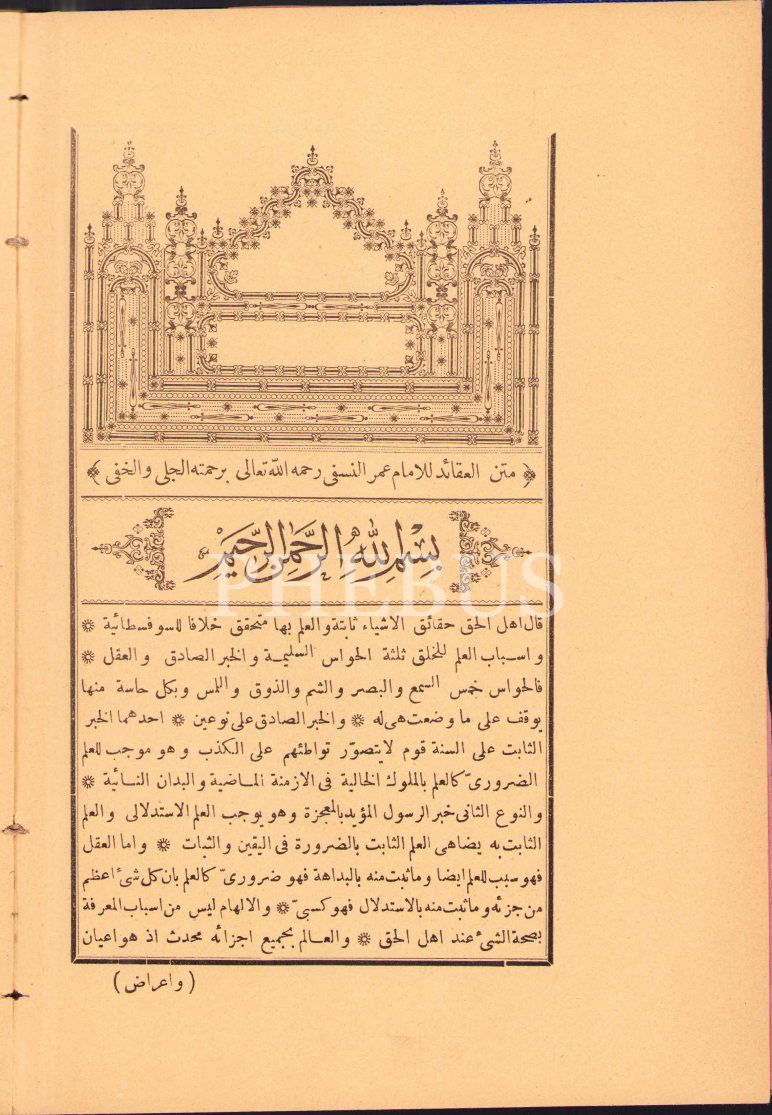 ﴿ متن العقائد للامام عمر النسفى رحمه الله تعالى برحمته الجلى والخفى ﴾
بِسْمِ اللهِ الرَّحْمٰنِ الرَّحِيْمِ
PHEBUS
قال اهل الحق حقائق الاشياء ثابتة والعلم بها متحقق خلافا للسوفسطائية ❋
واسباب العلم للخلق ثلثة الحواس السليمة والخبر الصادق والعقل ❋
فالحواس خمس السمع والبصر والشم والذوق واللمس وبكل حاسة منها
يوقف على ما وضعت هى له ❋ والخبر الصادق على نوعين ❋ احدهما الخبر
الثابت على السنة قوم لا يتصوّر تواطئهم على الكذب وهو موجب للعلم
الضرورىّ كالعلم بالملوك الخالية فى الازمنة الماضية والبدان النائية ❋
والنوع الثانى خبر الرسول المؤيد بالمعجزة وهو يوجب العلم الاستدلالى والعلم
الثابت به يضاهى العلم الثابت بالضرورة فى اليقين والثبات ❋ واما العقل
فهو سبب للعلم ايضا وما ثبت منه بالبداهة فهو ضرورىّ كالعلم بان كل شئ اعظم
من جزئه وما ثبت منه بالاستدلال فهو كسبىّ ❋ والالهام ليس من اسباب المعرفة
بصحة الشئ عند اهل الحق ❋ والعالم بجميع اجزائه محدث اذ هو اعيان
( واعراض )